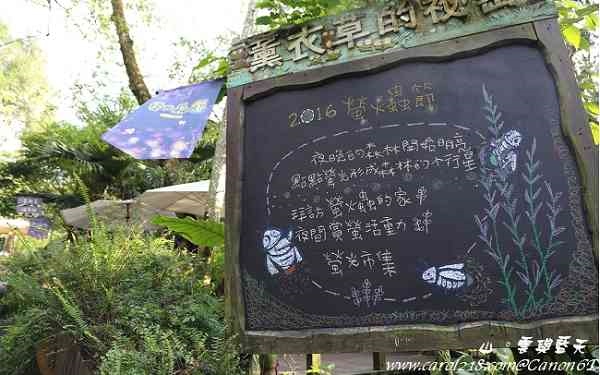 薰衣草的秘
2016 螢火蟲節
夜晚的森林開始明亮
點點螢光形成森林的小行星
拜訪螢火蟲的家
夜間賞螢活動
螢光市集
山。雲與藍天
www.carol218.com@Canon6D